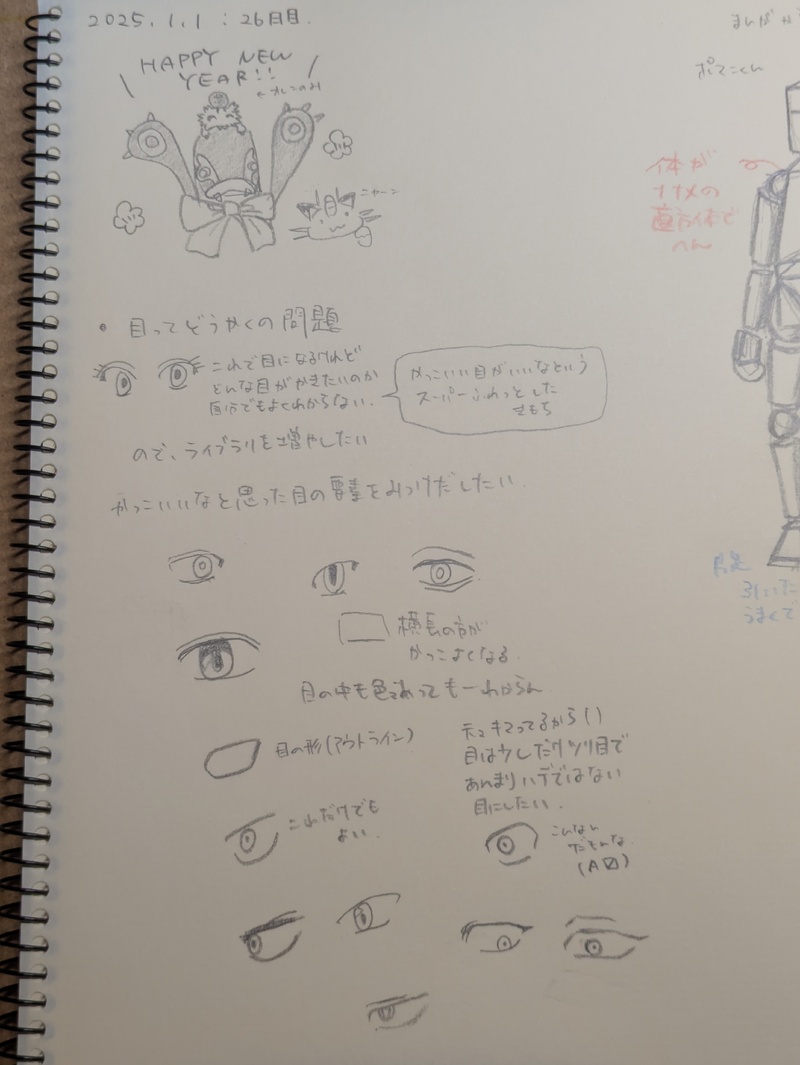 2025.1.1 : 26日目.
HAPPY NEW
YEAR!!
ニャーン
ポてこくん
体が
ナナメの
直方体で
へん
・目ってどうかくの問題
これで目になるけれど
どんな目がかきたいのか
自分でもよくわからない.
かっこいい目がいいなという
スーパーふわっとした
きもち
ので、ライブラリを増やしたい
かっこいいなと思った目の要素をみつけだしたい.
横長の方が
かっこよくなる.
目の中も色々あってもーわからん
目の形(アウトライン)
目は少しだけツリ目で
あんまりハデではない
目にしたい.
これだけでも
よい.
こんない
だもんな.
うまくで